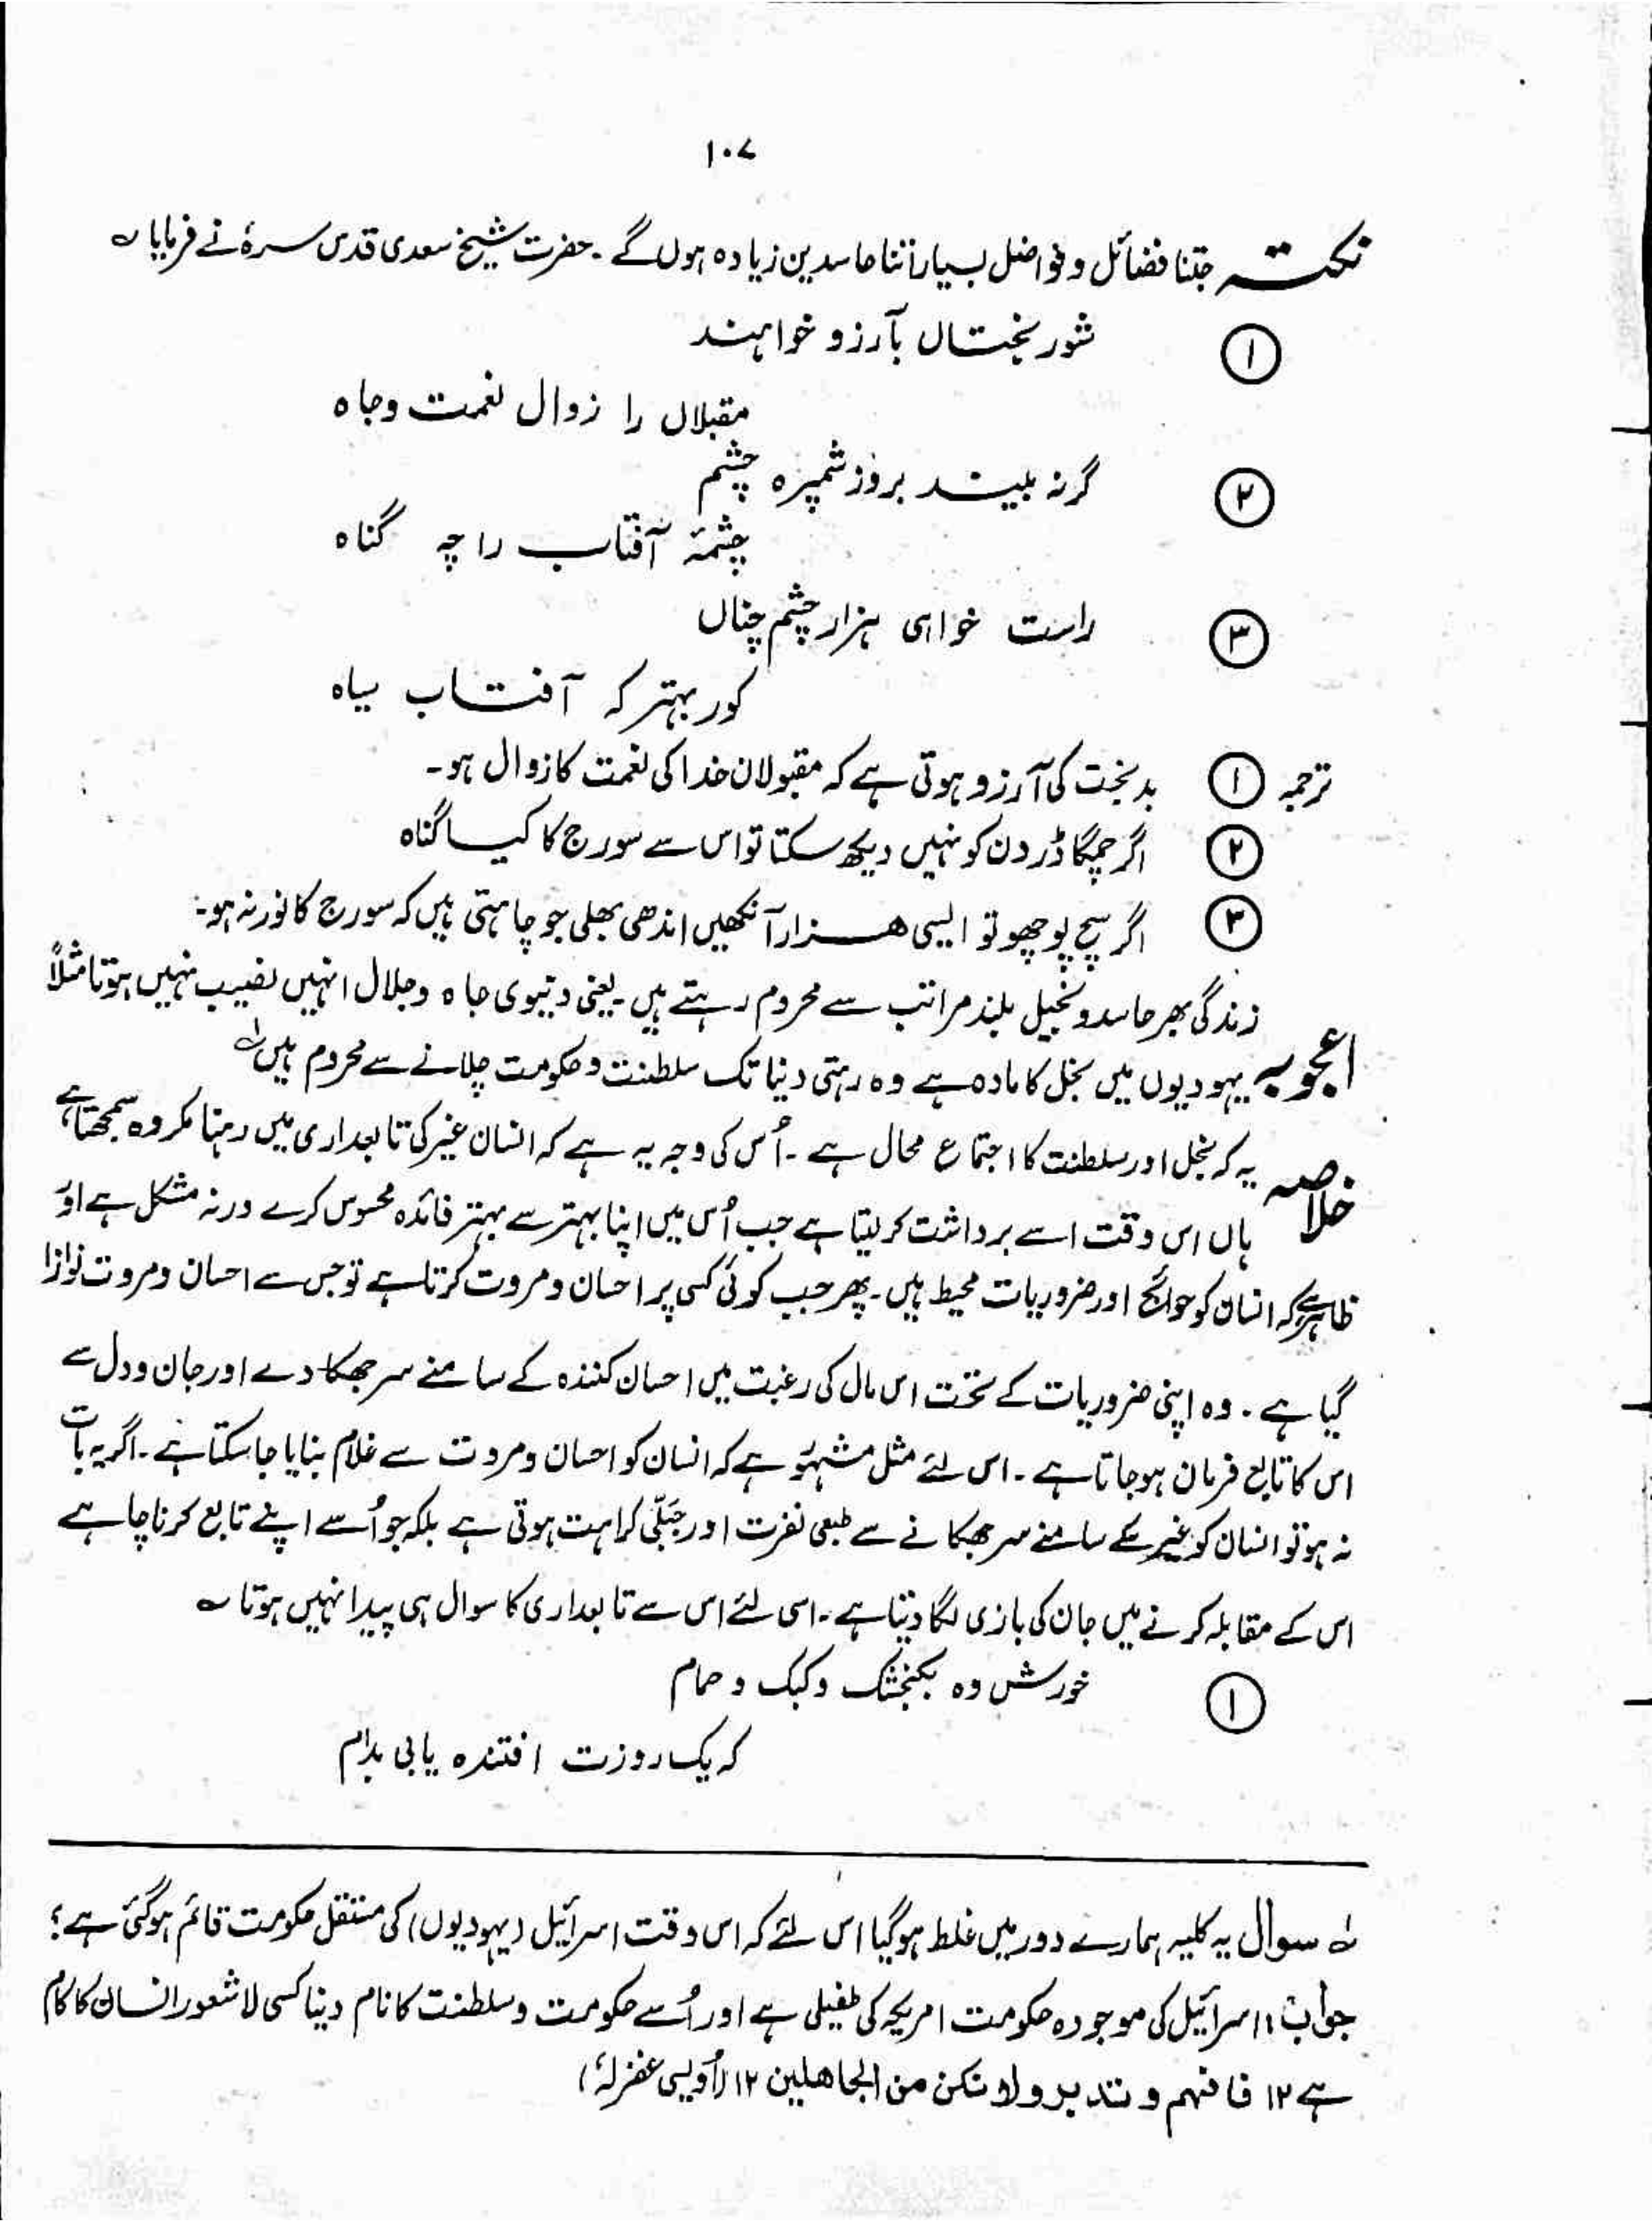 ۱۰۷
نکتہ جتنا فضائل و فواضل بسیار اتنا حاسدین زیادہ ہوں گے ۔ حضرت شیخ سعدی قدس سرہٗ نے فرمایا ؎
① شور بختاں بآرزو خواہند
مقبلاں را زوال نعمت و جاہ
② گر نہ بیند بروز شمپرہ چشم
چشمۂ آفتاب را چہ گناہ
③ راست خواہی ہزار چشم چناں
کور بہتر کہ آفتاب سیاہ
ترجمہ ① بدبخت کی آرزو ہوتی ہے کہ مقبولان خدا کی نعمت کا زوال ہو ۔
② اگر چمگاڈر دن کو نہیں دیکھ سکتا تو اس سے سورج کا کیا گناہ
③ اگر سچ پوچھو تو ایسی ہزار آنکھیں اندھی بھلی جو چاہتی ہیں کہ سورج کا نور نہ ہو ۔
زندگی بھر حاسد و بخیل بلند مراتب سے محروم رہتے ہیں ۔ یعنی دنیوی جاہ و جلال انہیں نصیب نہیں ہوتا مثلاً
اعجوبہ یہودیوں میں بخل کا مادہ ہے وہ رہتی دنیا تک سلطنت و حکومت چلانے سے محروم ہیں لہ
خلاصہ یہ کہ بخل اور سلطنت کا اجتماع محال ہے ۔ اُس کی وجہ یہ ہے کہ انسان غیر کی تابعداری میں رہنا مکروہ سمجھتا ہے
ہاں اس وقت اسے برداشت کرلیتا ہے جب اُس میں اپنا بہتر سے بہتر فائدہ محسوس کرے ورنہ مشکل ہے اور
ظاہر ہے کہ انسان کو حوائج اور ضروریات محیط ہیں ۔ پھر جب کوئی کسی پر احسان و مروت کرتا ہے تو جس سے احسان و مروت نوازا
گیا ہے ۔ وہ اپنی ضروریات کے تحت اس مال کی رغبت میں احسان کنندہ کے سامنے سر جھکا دے اور جان و دل سے
اس کا تابع فرمان ہوجاتا ہے ۔ اس لئے مثل مشہور ہے کہ انسان کو احسان و مروت سے غلام بنایا جاسکتا ہے ۔ اگر یہ بات
نہ ہو تو انسان کو غیر کے سامنے سر جھکانے سے طبعی نفرت اور جبلّی کراہت ہوتی ہے بلکہ جو اُسے اپنے تابع کرنا چاہے
اس کے مقابلہ کرنے میں جان کی بازی لگا دیتا ہے ۔ اسی لئے اس سے تابعداری کا سوال ہی پیدا نہیں ہوتا ؎
① خورش دہ بکنجشک و کبک و حمام
کہ یک روزت افتندہ یابی بدام
لہ سوال یہ کلیہ ہمارے دور میں غلط ہوگیا اس لئے کہ اس وقت اسرائیل (یہودیوں) کی مستقل حکومت قائم ہوگئی ہے ؟
جواب ۱؍ اسرائیل کی موجودہ حکومت امریکہ کی طفیلی ہے اور اُسے حکومت و سلطنت کا نام دینا کسی لاشعور انسان کا کام
ہے ۱۲ فافہم و تدبر ولا تکن من الجاھلین ۱۲ (اُویسی غفرلہٗ)